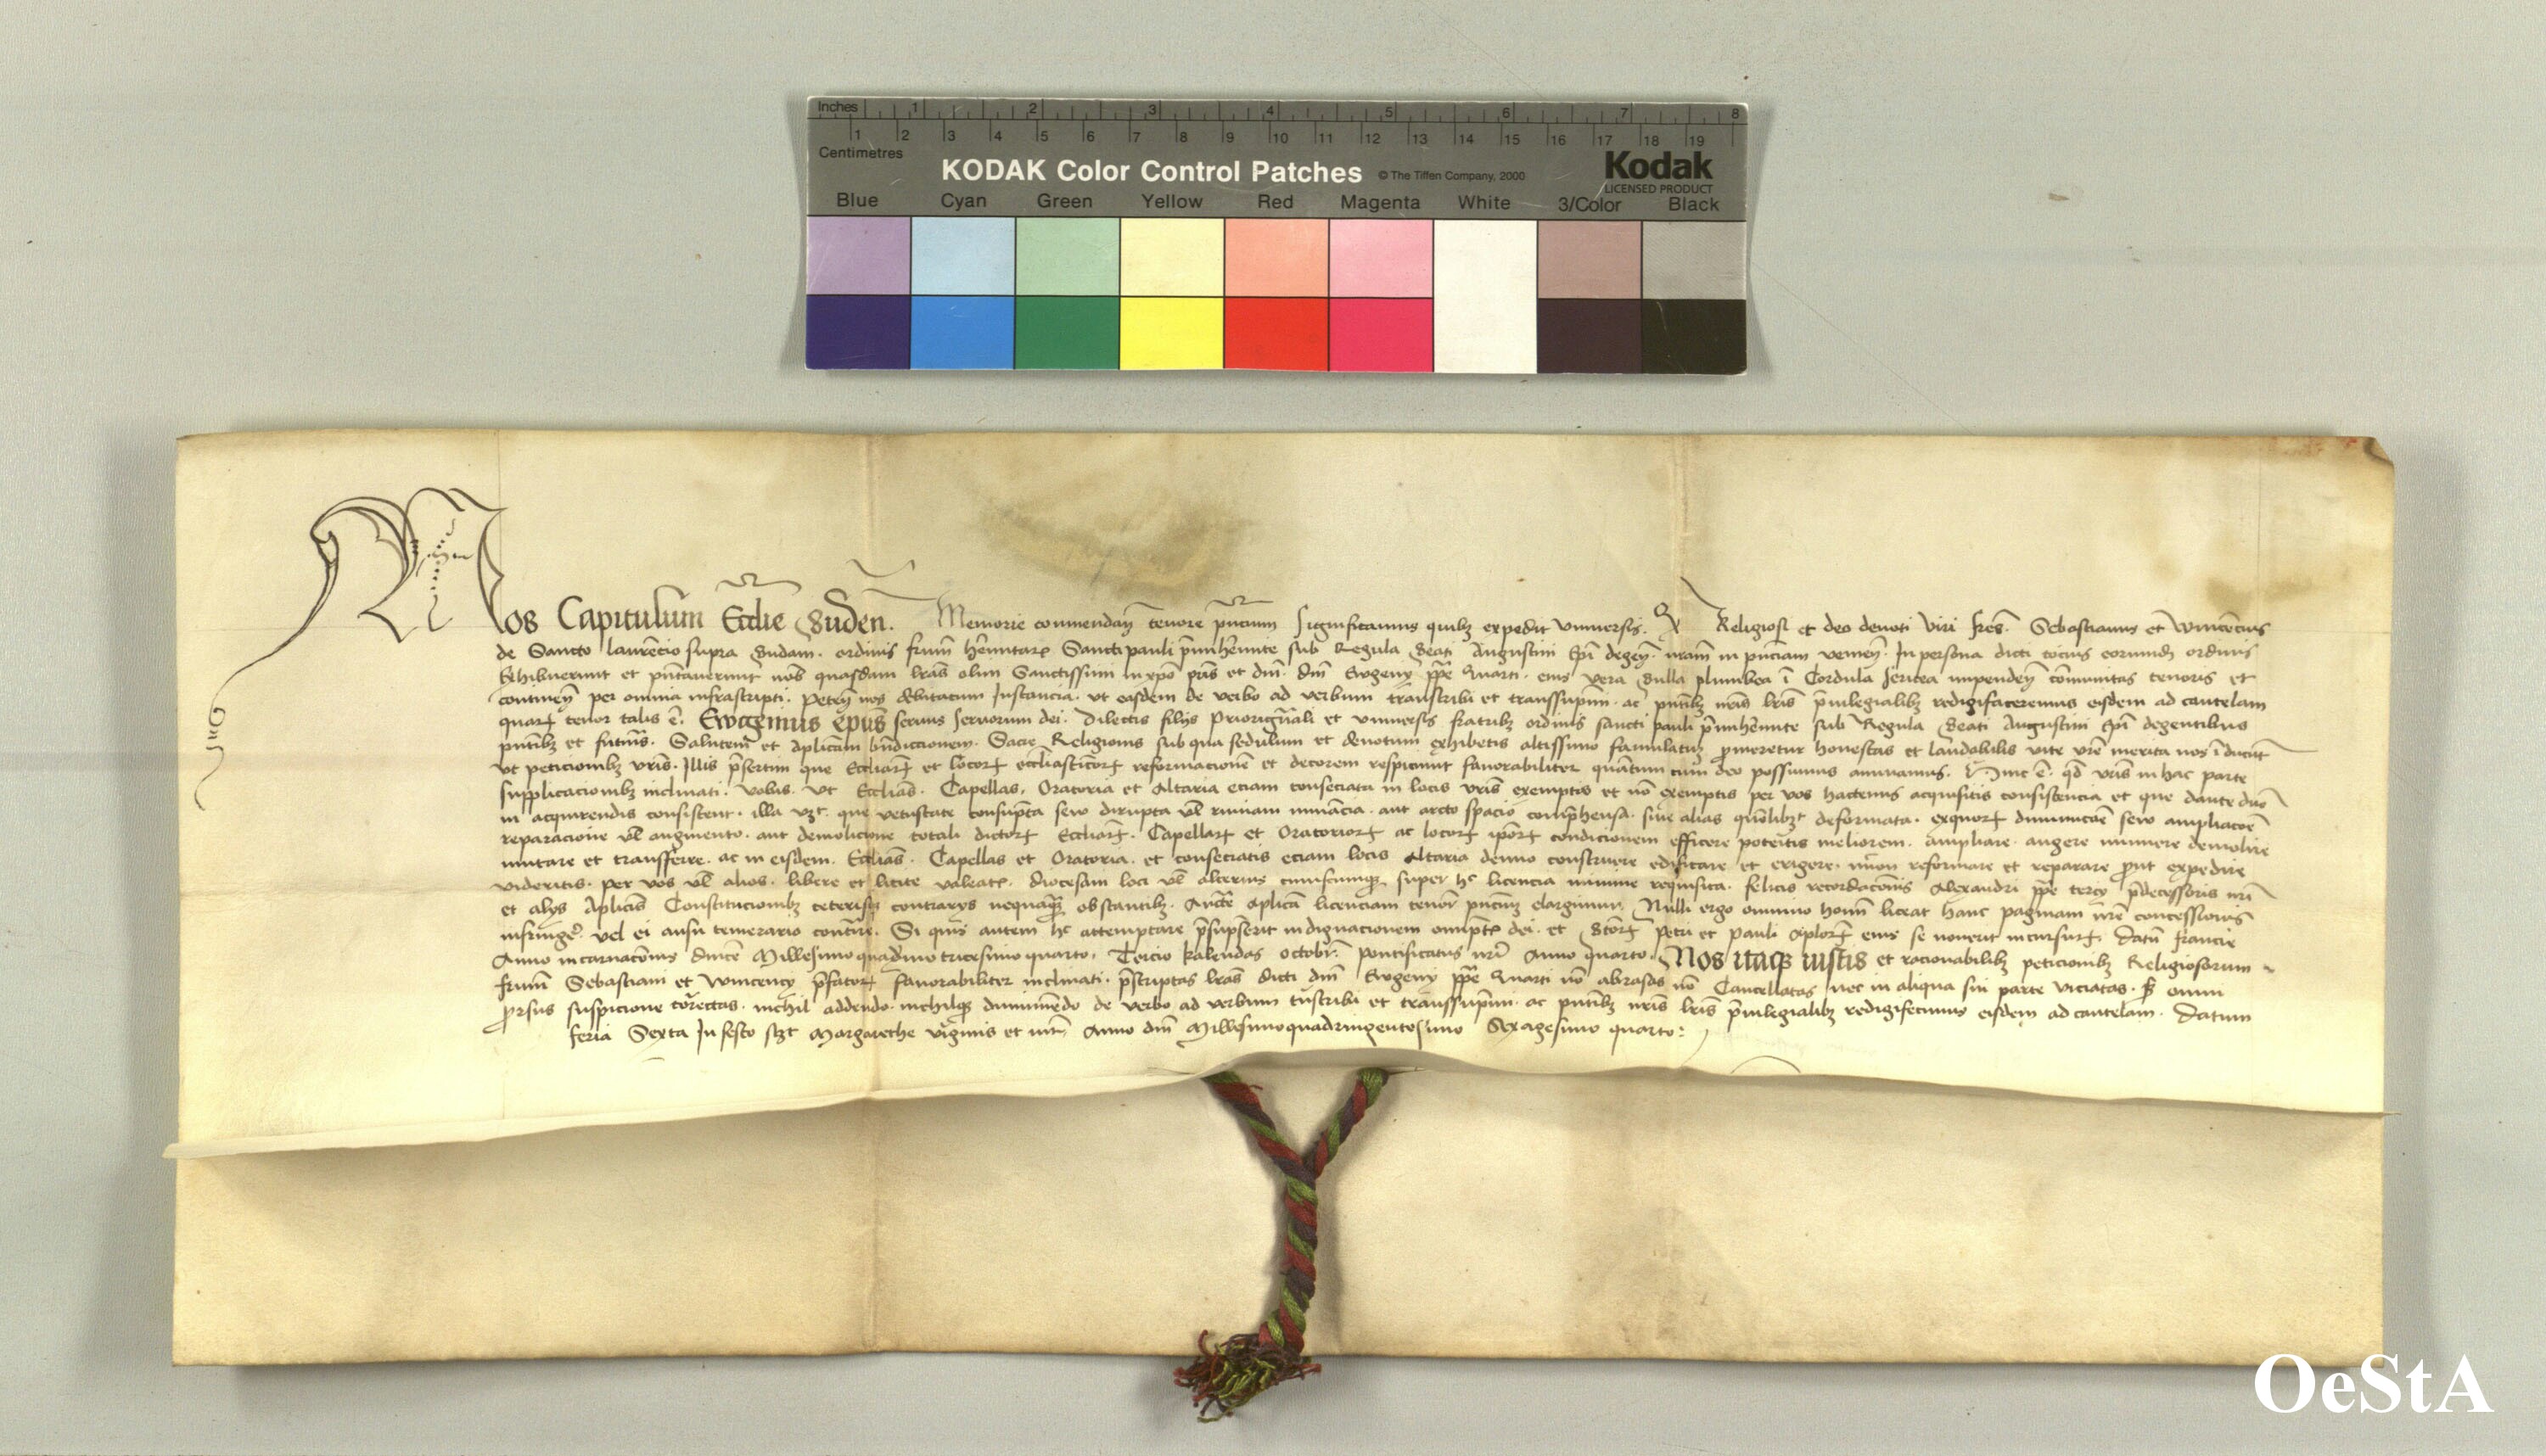 Inches 1 2 3 4 5 6 7 8
1 2 3 4 5 6 7 8 9 10 11 12 13 14 15 16 17 18 19
Centimetres
KODAK Color Control Patches © The Tiffen Company, 2000 Kodak
LICENSED PRODUCT
Blue Cyan Green Yellow Red Magenta White 3/Color Black
Nos Capitulum Ecclie Buden. Memorie commendan tenore pntium significamus quibz expedit universis. Religiosi et deo devoti viri fres. Sebastianus et Vincencius
de Sancto laurencio supra Budam. ordinis frum heremitarum Sancti pauli primi heremite sub Regula Beati Augustini Epi degen. nram in pnciam venien. In persona dicti tocius eorundz ordinis
Exhibuerunt et pntaverunt nob quasdam lras olim Sanctissimi in xpo pris et dni. dni Ewgeny ppe Quarti. eius vera Bulla plumbea i Cordula sericea impenden communitas tenoris et
continen per omnia infrascripti. Peten nos debitacum Instancia. ut easdem de verbo ad verbum transcribi et transsupmi. ac pntibz nris lris privilegialibz redigifaceremus eisdem ad cautelam
quarum tenor talis e. Ewgenius epus servus servorum dei. Dilectis filys Priorignali et universis fratribz ordinis sancti pauli primi heremite sub Regula Beati Augustini Epi degentibus
pntibz et futuris. Salutem et aplicam bndiccionem. Sacre Religionis sub qua sedulum et devotum exhibetis altissimo famulatum promeretur honestas et laudabilis vite vre merita nos i ducut
ut peticionibz vris. Illis presertim que Eccliarum et locorum ecclesiasticorum reformacionem et decorem respiciunt favorabiliter quantum cum deo possumus annuamus. Hinc e. qd vris in hac parte
supplicacionibz inclinati. vobis. ut Ecclias. Capellas, Oratoria et Altaria eciam consecrata in locis vris exemptis et no exemptis per vos hactenus acquisitis consistencia et que dante dno
in acquirendis consistent. illa vzt. que vetustate consumpta sew dirupta vel ruinam minancia. aut arcto spacio comprehensa. sive alias quomolibzt deformata. exquorum diminucoe sew ampliacoe
reparacione vel augmento. aut demolicione totali dictorum Eccliarum. Capellarum et Oratoriorum ac locorum iporum condicionem efficere poteritis meliorem. ampliare. augere minuere demolire
mutare et transferre. ac in eisdem. Ecclias. Capellas et Oratoria. et consecratis eciam locis Altaria denuo construere edificare et erigere. reformare et reparare prout expedire
videritis. per vos vel alios. libere et licite valeatis. diocesani loci vel alterius cuiuscumque super hc licencia minime requisita. felicis recordacionis Alexandri ppe tercy predecessoris nri
et alys Aplicis Constitucionibz ceterisque contrarys nequaquam obstantibz. Auctte aplica licenciam tenore pncium elargimur. Nulli ergo omnino homi liceat hanc paginam nre concessionis
infringere. vel ei ausu temerario contraire. Si quis autem hc attemptare presumpserit indignacionem ompts dei. et Beatorum Petri et Pauli Aplorum eius se noverit incursurum. Datum florencie
Anno incarnacionis dnice Millesimo quadrmo tricesimo quarto. Tercio kalendas octobris. pontificatus nri Anno quarto. Nos itaqz iustis et racionabilibz peticionibz Religiosorum
frum Sebastiani et vincency prefatorum favorabiliter inclinati. prescriptas lras dicti dni Ewgeny ppe Quarti no abrasas no Cancellatas nec in aliqua sui parte viciatas. sed omni
prorsus suspicione carentes. nichil addendo. nichilqz diminuendo de verbo ad verbum transcribi et transsupmi. ac pntibz nris lris privilegialibz redigifecimus eisdem ad cautelam. Datum
feria Sexta In festo scilicet Margarethe virginis et mris Anno dni Millesimoquadringentesimo Sexagesimo quarto:
OeStA